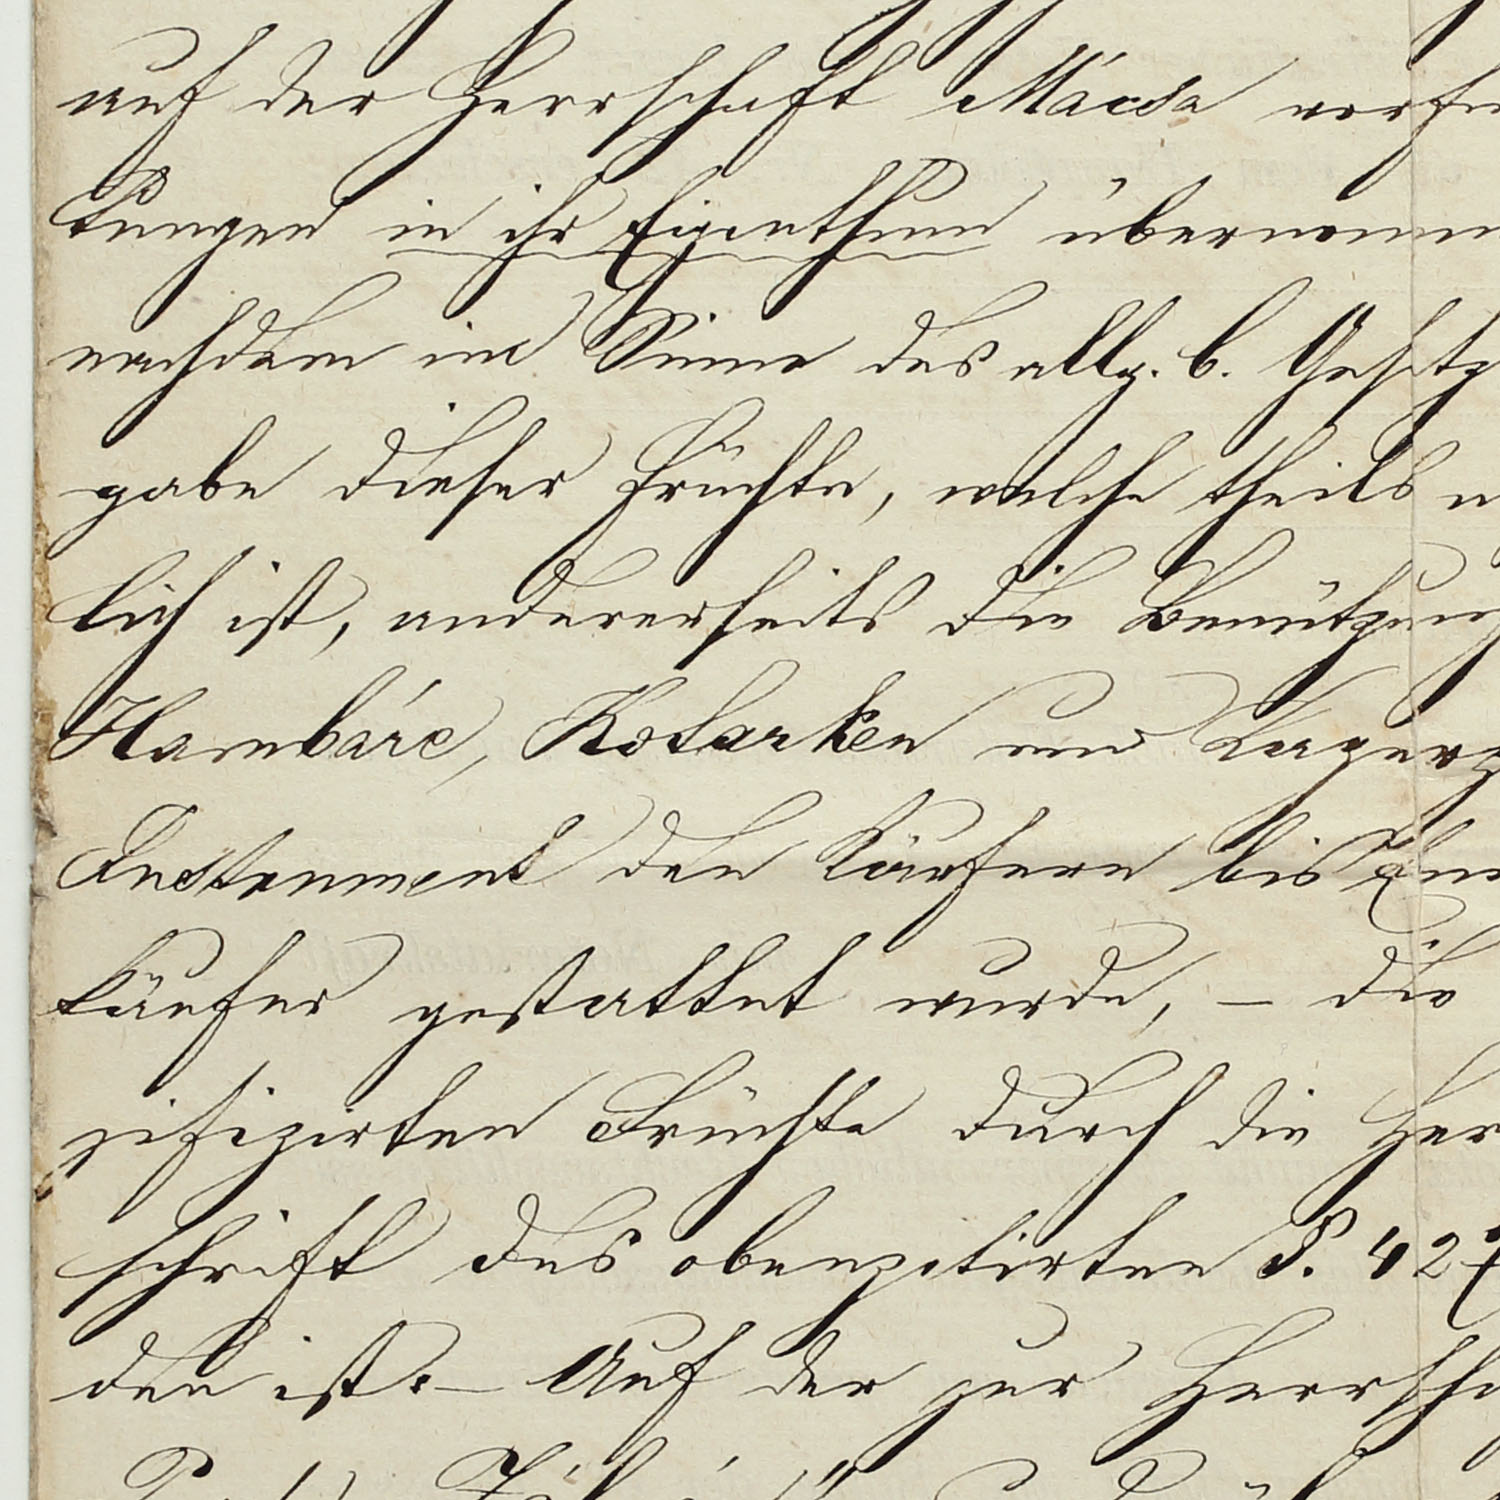 auf der Herrschaft Mácsa vorfin
tungen in ihr Eigenthum übernomm
nachdem im Sinne des allg. b. Gesetz
gabe dieser Früchte, welche theils u
lich ist, andererseits die Benützung
Hambáre, Kotarken und Lagerp
Instrument den Käufern bis Ende
käufer gestattet wurde, – die
zifizirten Früchte durch die Her
schrift des obenzitirten §. 427
den ist. – Auf der zur Herrscha